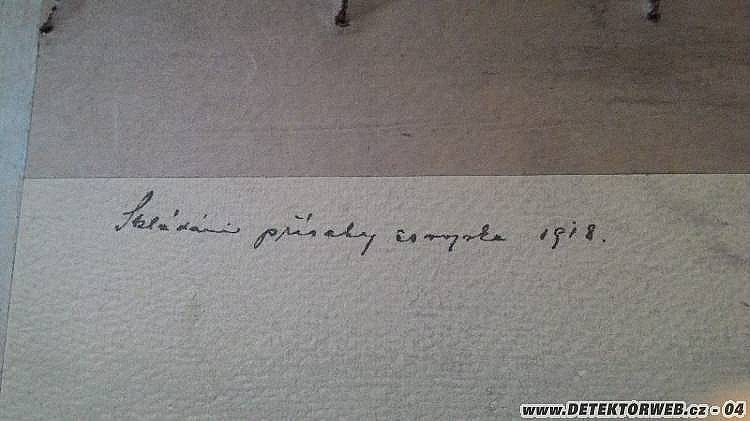 Skládání přísahy čs. vojska 1918.
www.DETEKTORWEB.cz - 04